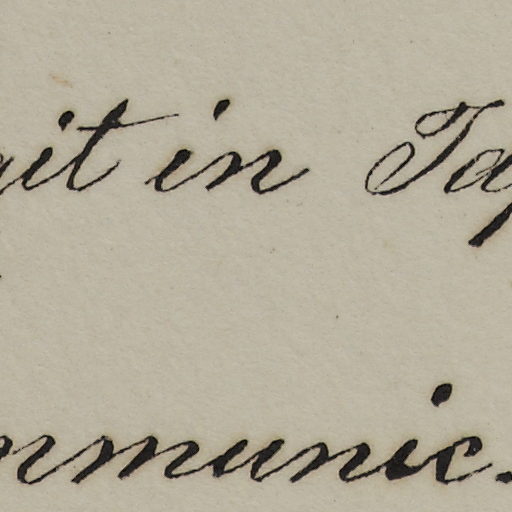 git in Jap
mmunic.